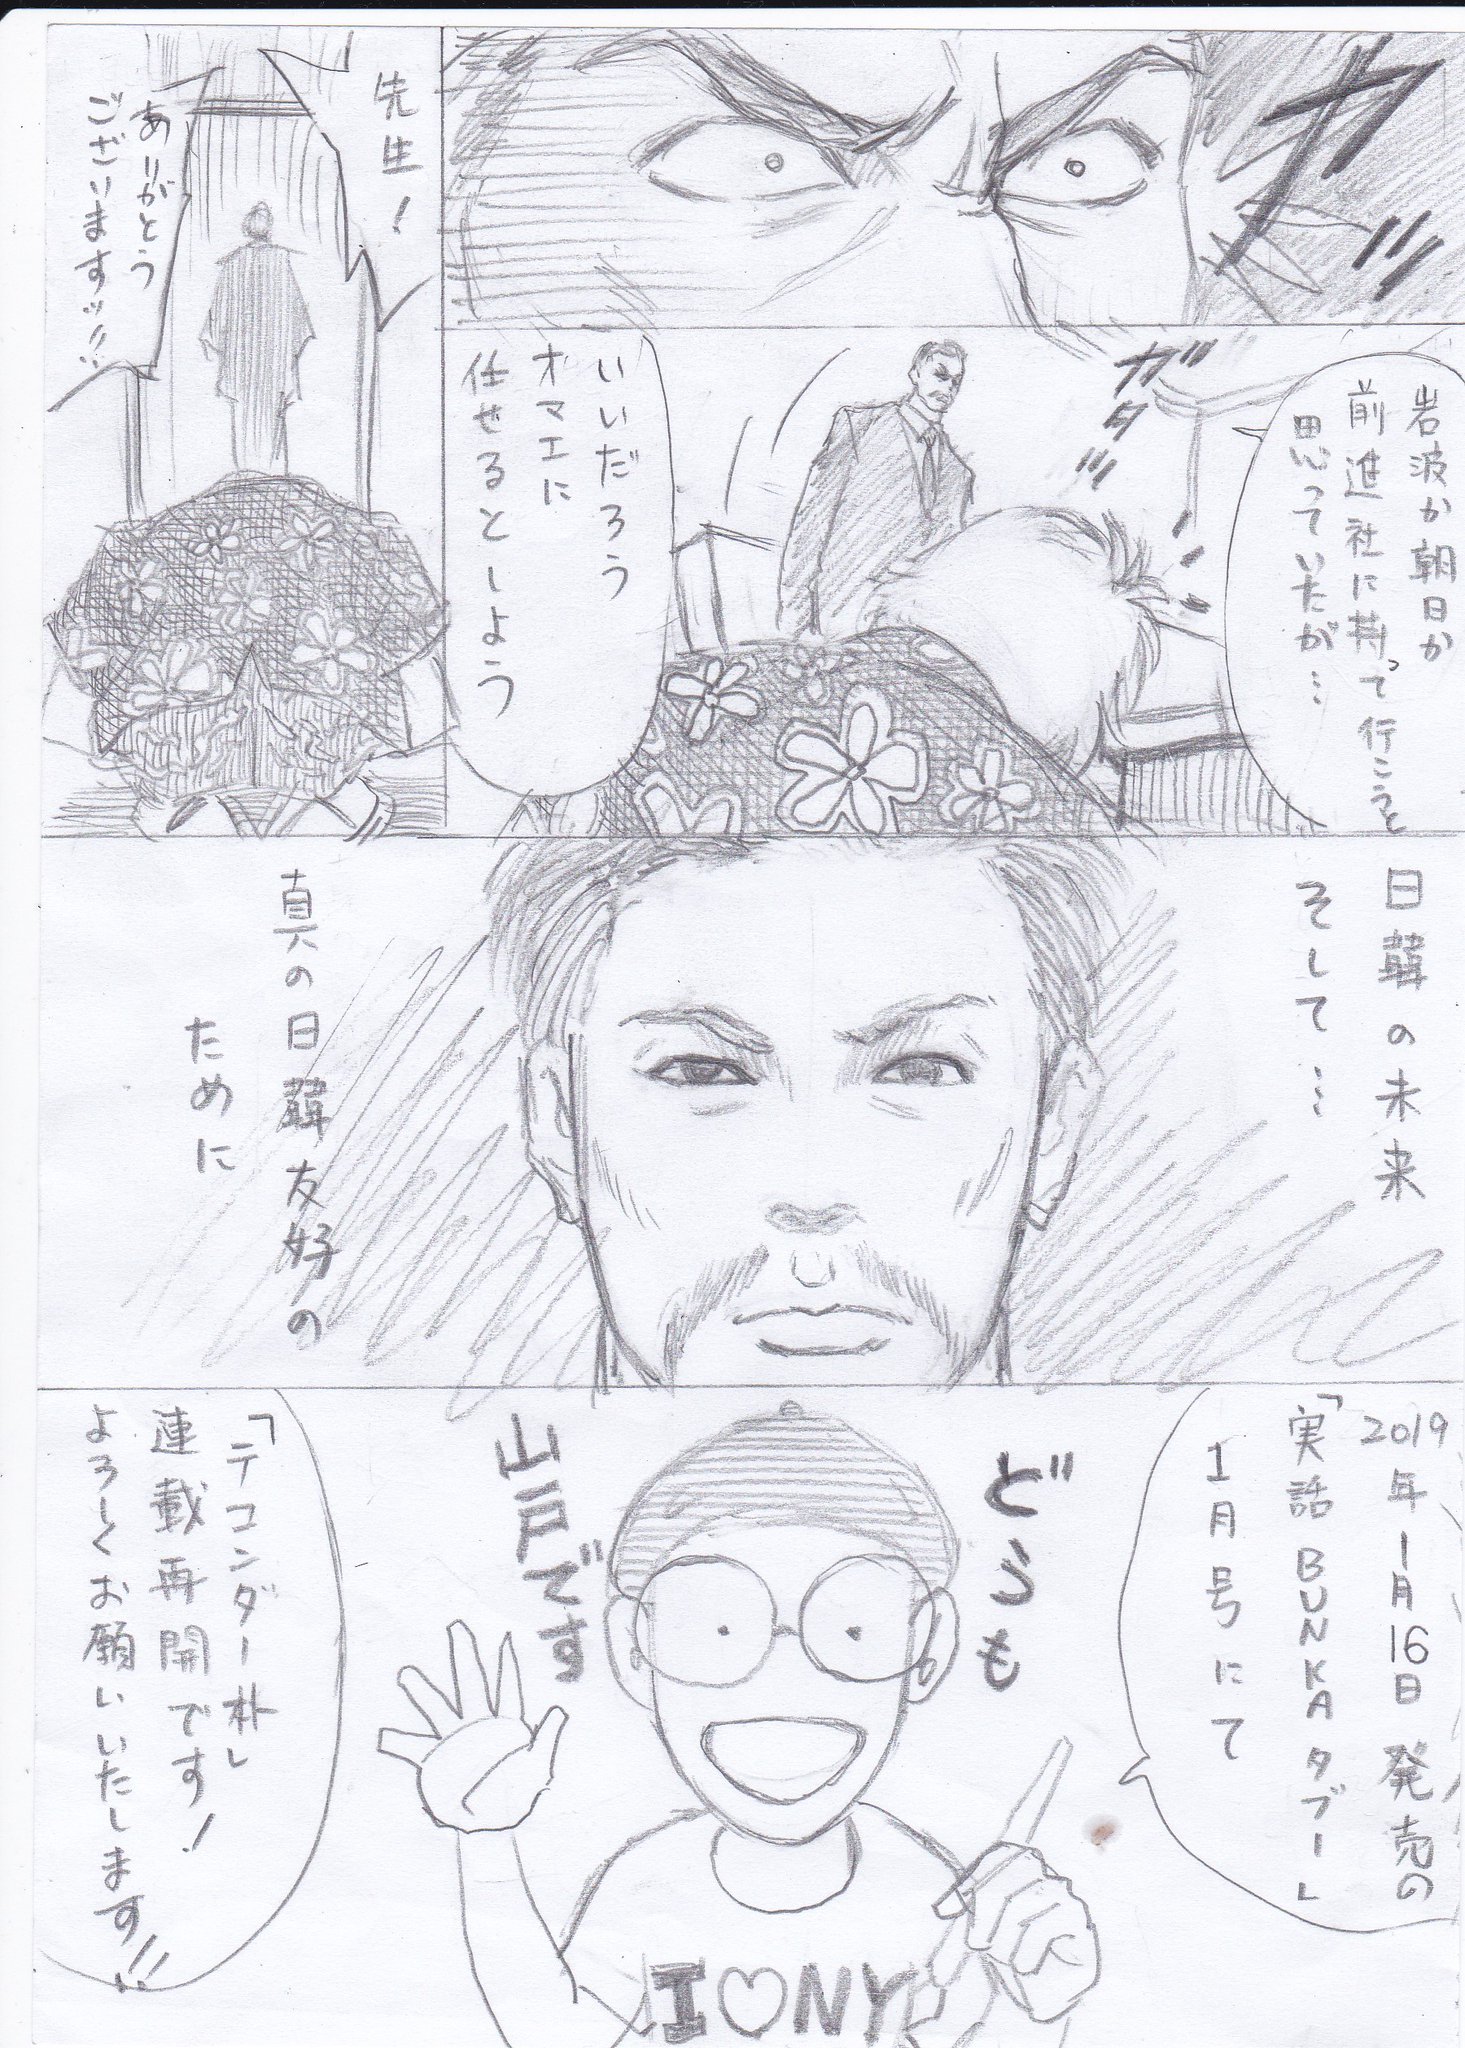 カッ
岩波か朝日か
前進社に持って行こうと
思っていたが…
ガタッ
いいだろう
オマエに
任せるとしよう
先生!
ありがとう
ございますッ!!
日韓の未来
そして…
真の日韓友好の
ために
2019年1月16日発売の
「実話BUNKAタブー」
1月号にて
どうも
山戸です
I♡NY
「テコンダー朴」
連載再開です!
よろしくお願いいたします!!